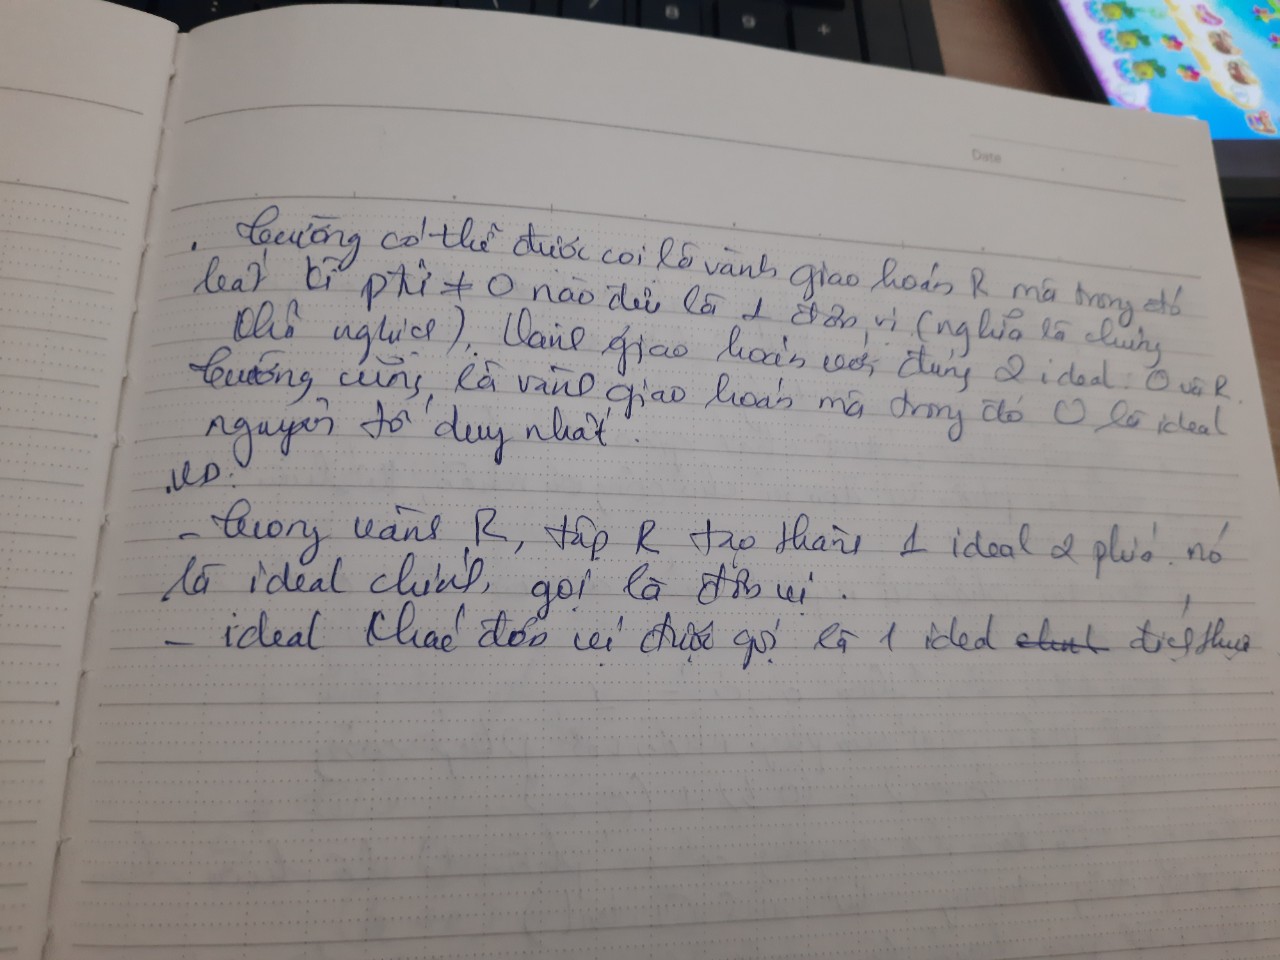 8 9 +
Date
. trường có thể được coi là vành giao hoán R mà trong đó
bất kì ptử ≠ 0 nào đều là 1 đơn vị (nghĩa là chúng
khả nghịch). Vành giao hoán với đúng 2 ideal: 0 và R.
trường cũng là vành giao hoán mà trong đó 0 là ideal
nguyên tố duy nhất.
.VD:
- trong vành R, tập R tạo thành 1 ideal 2 phía. nó
là ideal chính, gọi là đơn vị.
- ideal khác đơn vị được gọi là 1 ideal thực